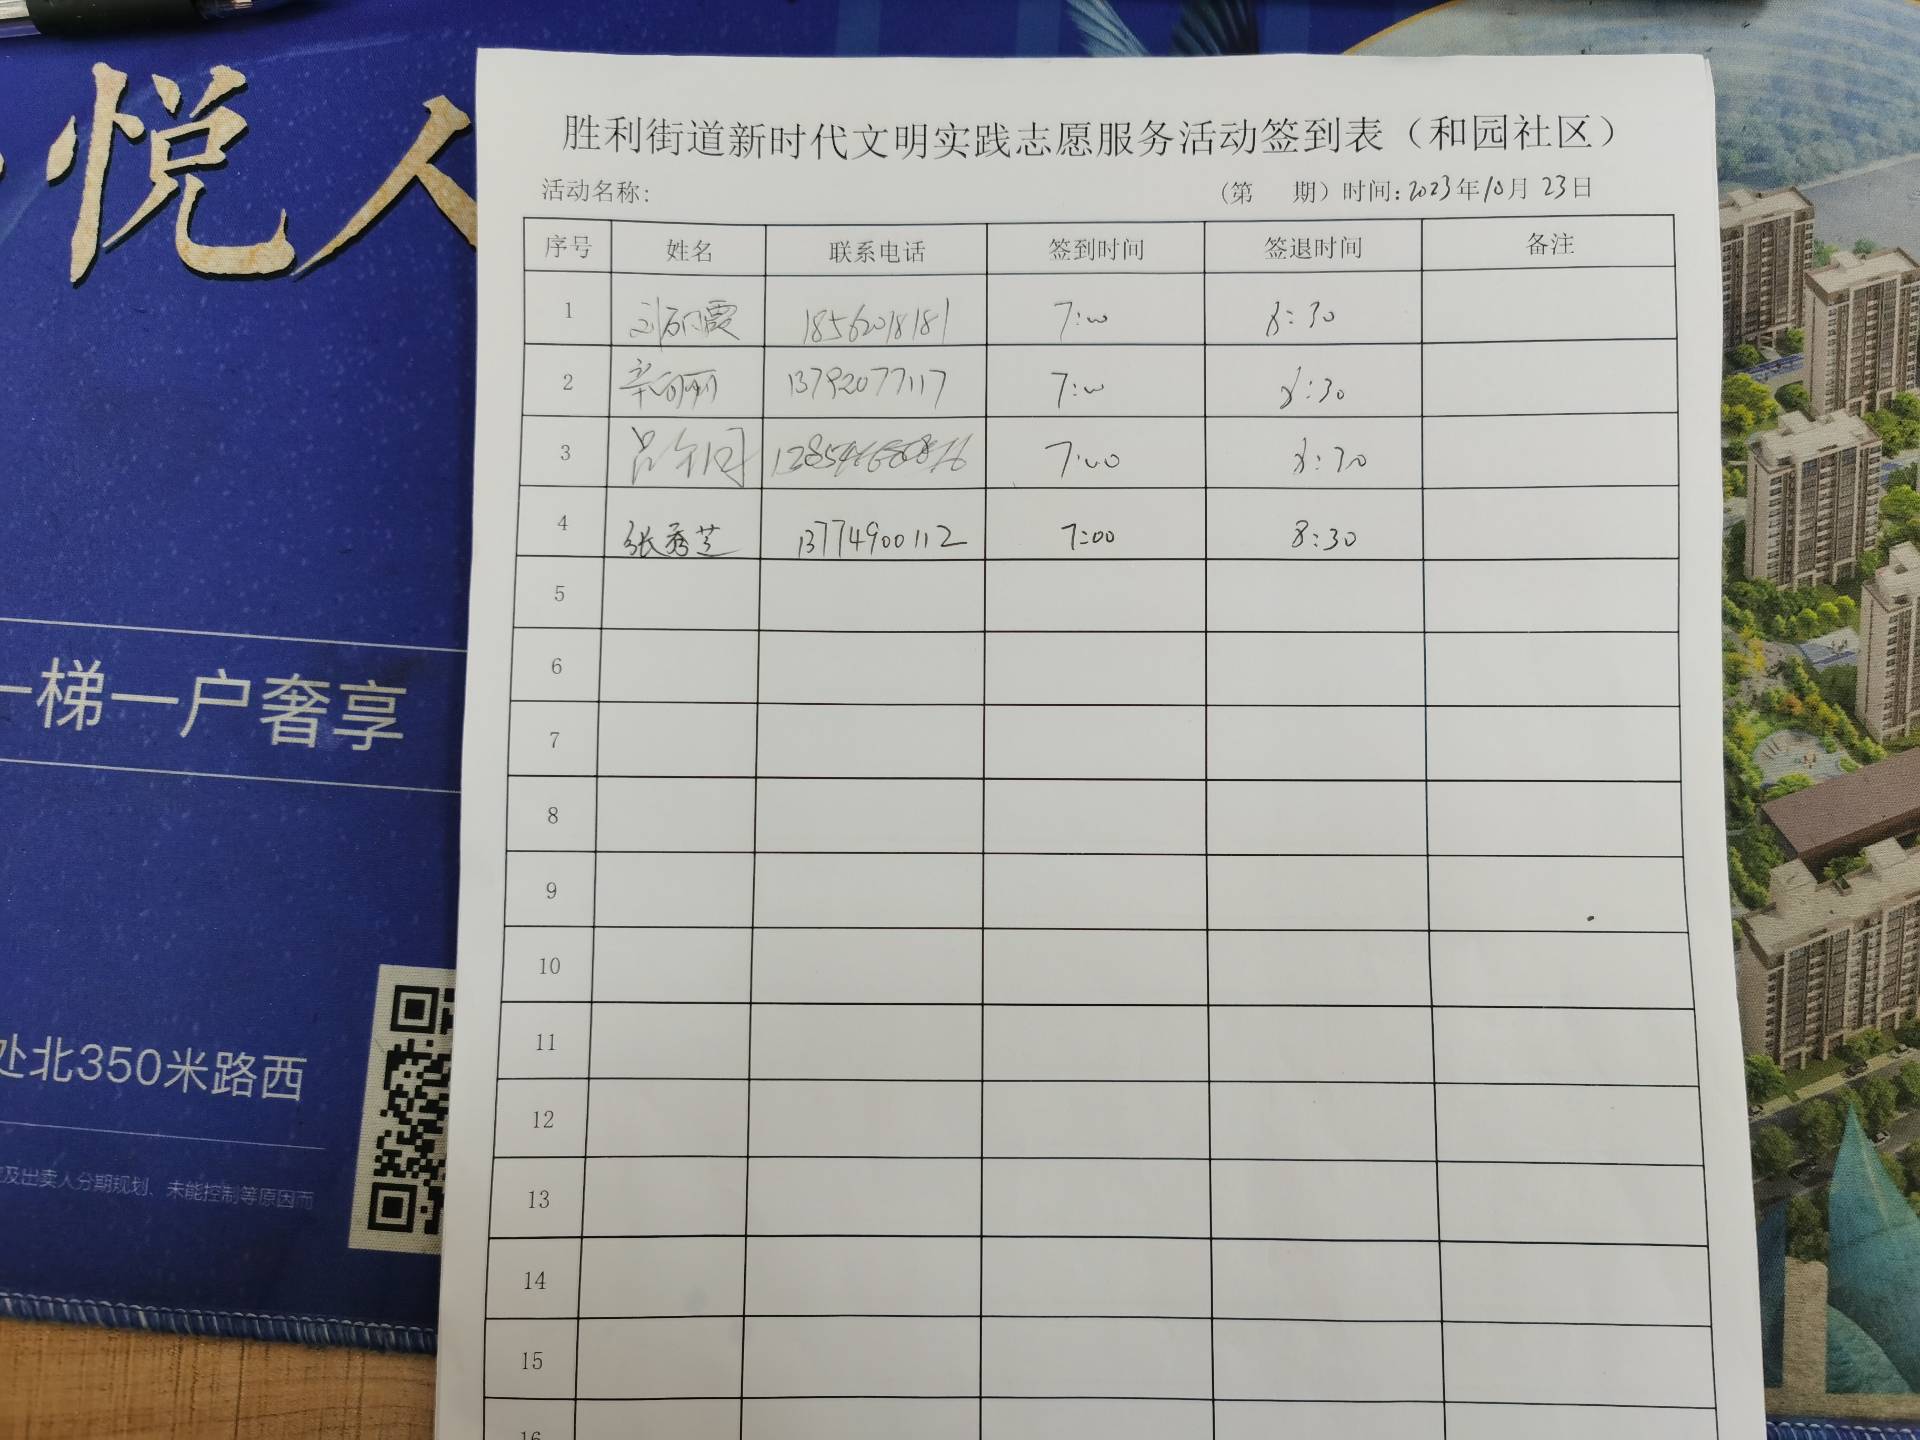 悦人
一梯一户奢享
处北350米路西
及出卖人分期规划、未能控制等原因而
胜利街道新时代文明实践志愿服务活动签到表（和园社区）
活动名称: （第 期）时间:2023年10月23日
序号 姓名 联系电话 签到时间 签退时间 备注
1 18562018181 7:00 8:30
2 13792077117 7:00 8:30
3 7:00 8:30
4 张秀芝 13774900112 7:00 8:30
5
6
7
8
9
10
11
12
13
14
15
16